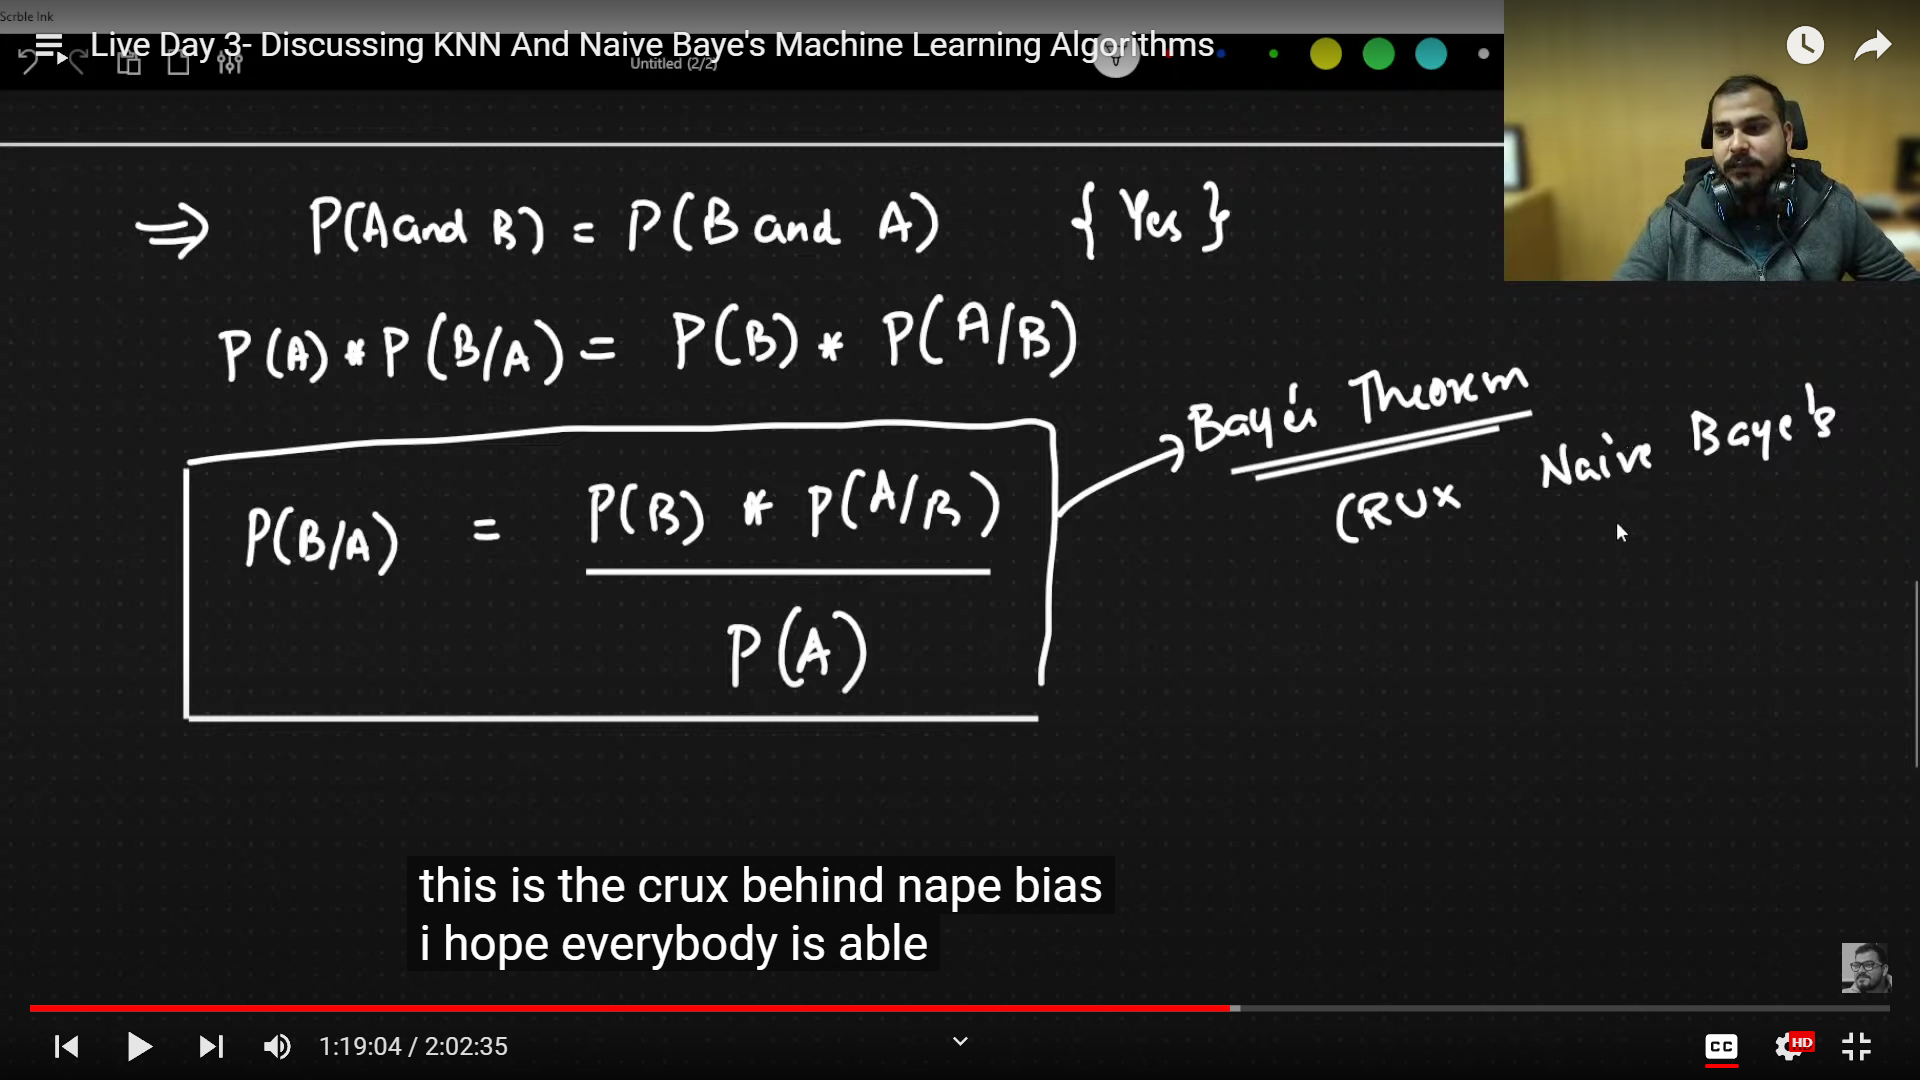 Scrble Ink
Live Day 3- Discussing KNN And Naive Baye's Machine Learning Algorithms
Untitled (2/2)
⇒ P(A and B) = P(B and A) { Yes }
P(A) * P(B/A) = P(B) * P(A/B)
P(B/A) = P(B) * P(A/B)
P(A)
→ Baye's Theorem
(RUX Naive Baye's
this is the crux behind nape bias
i hope everybody is able
1:19:04 / 2:02:35
CC
HD